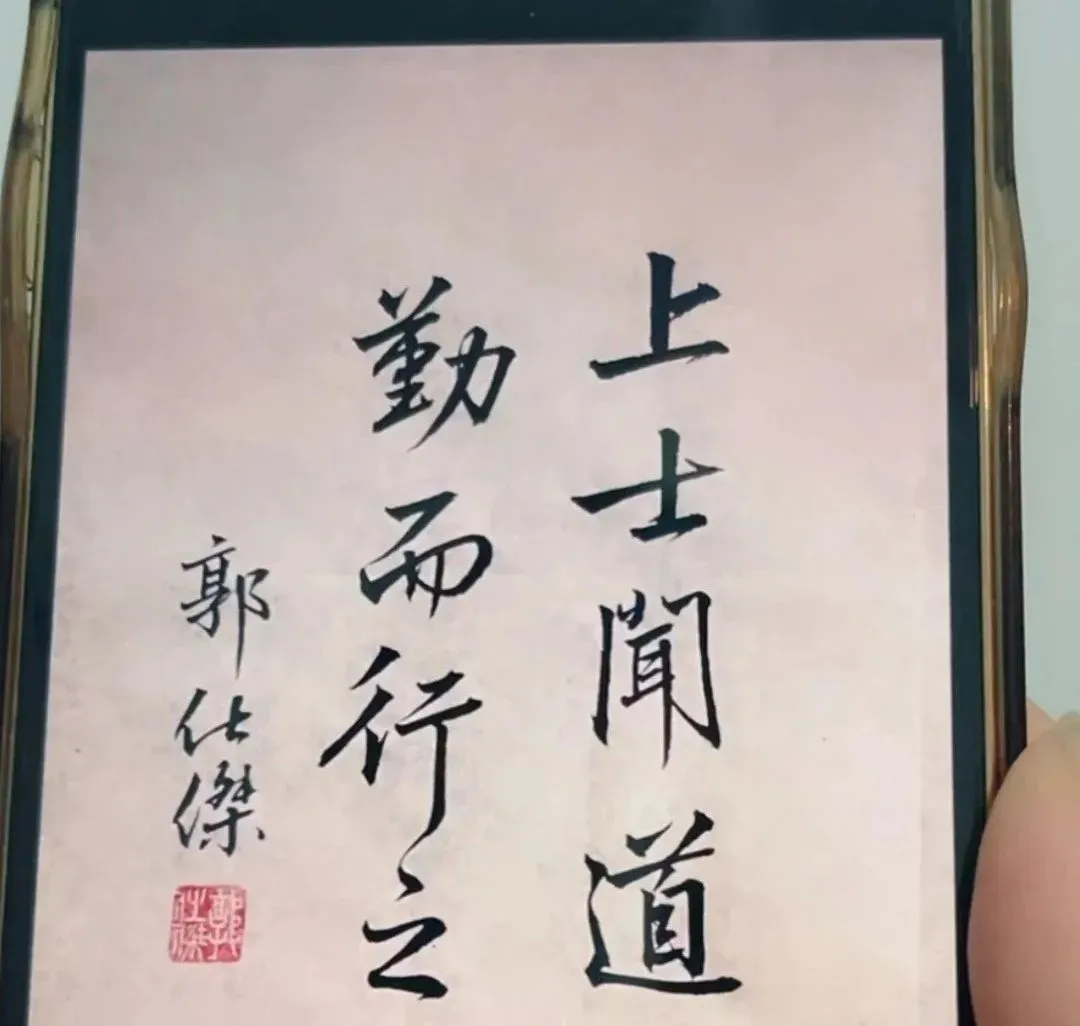 上士聞道
勤而行之
郭仕傑
郭仕傑